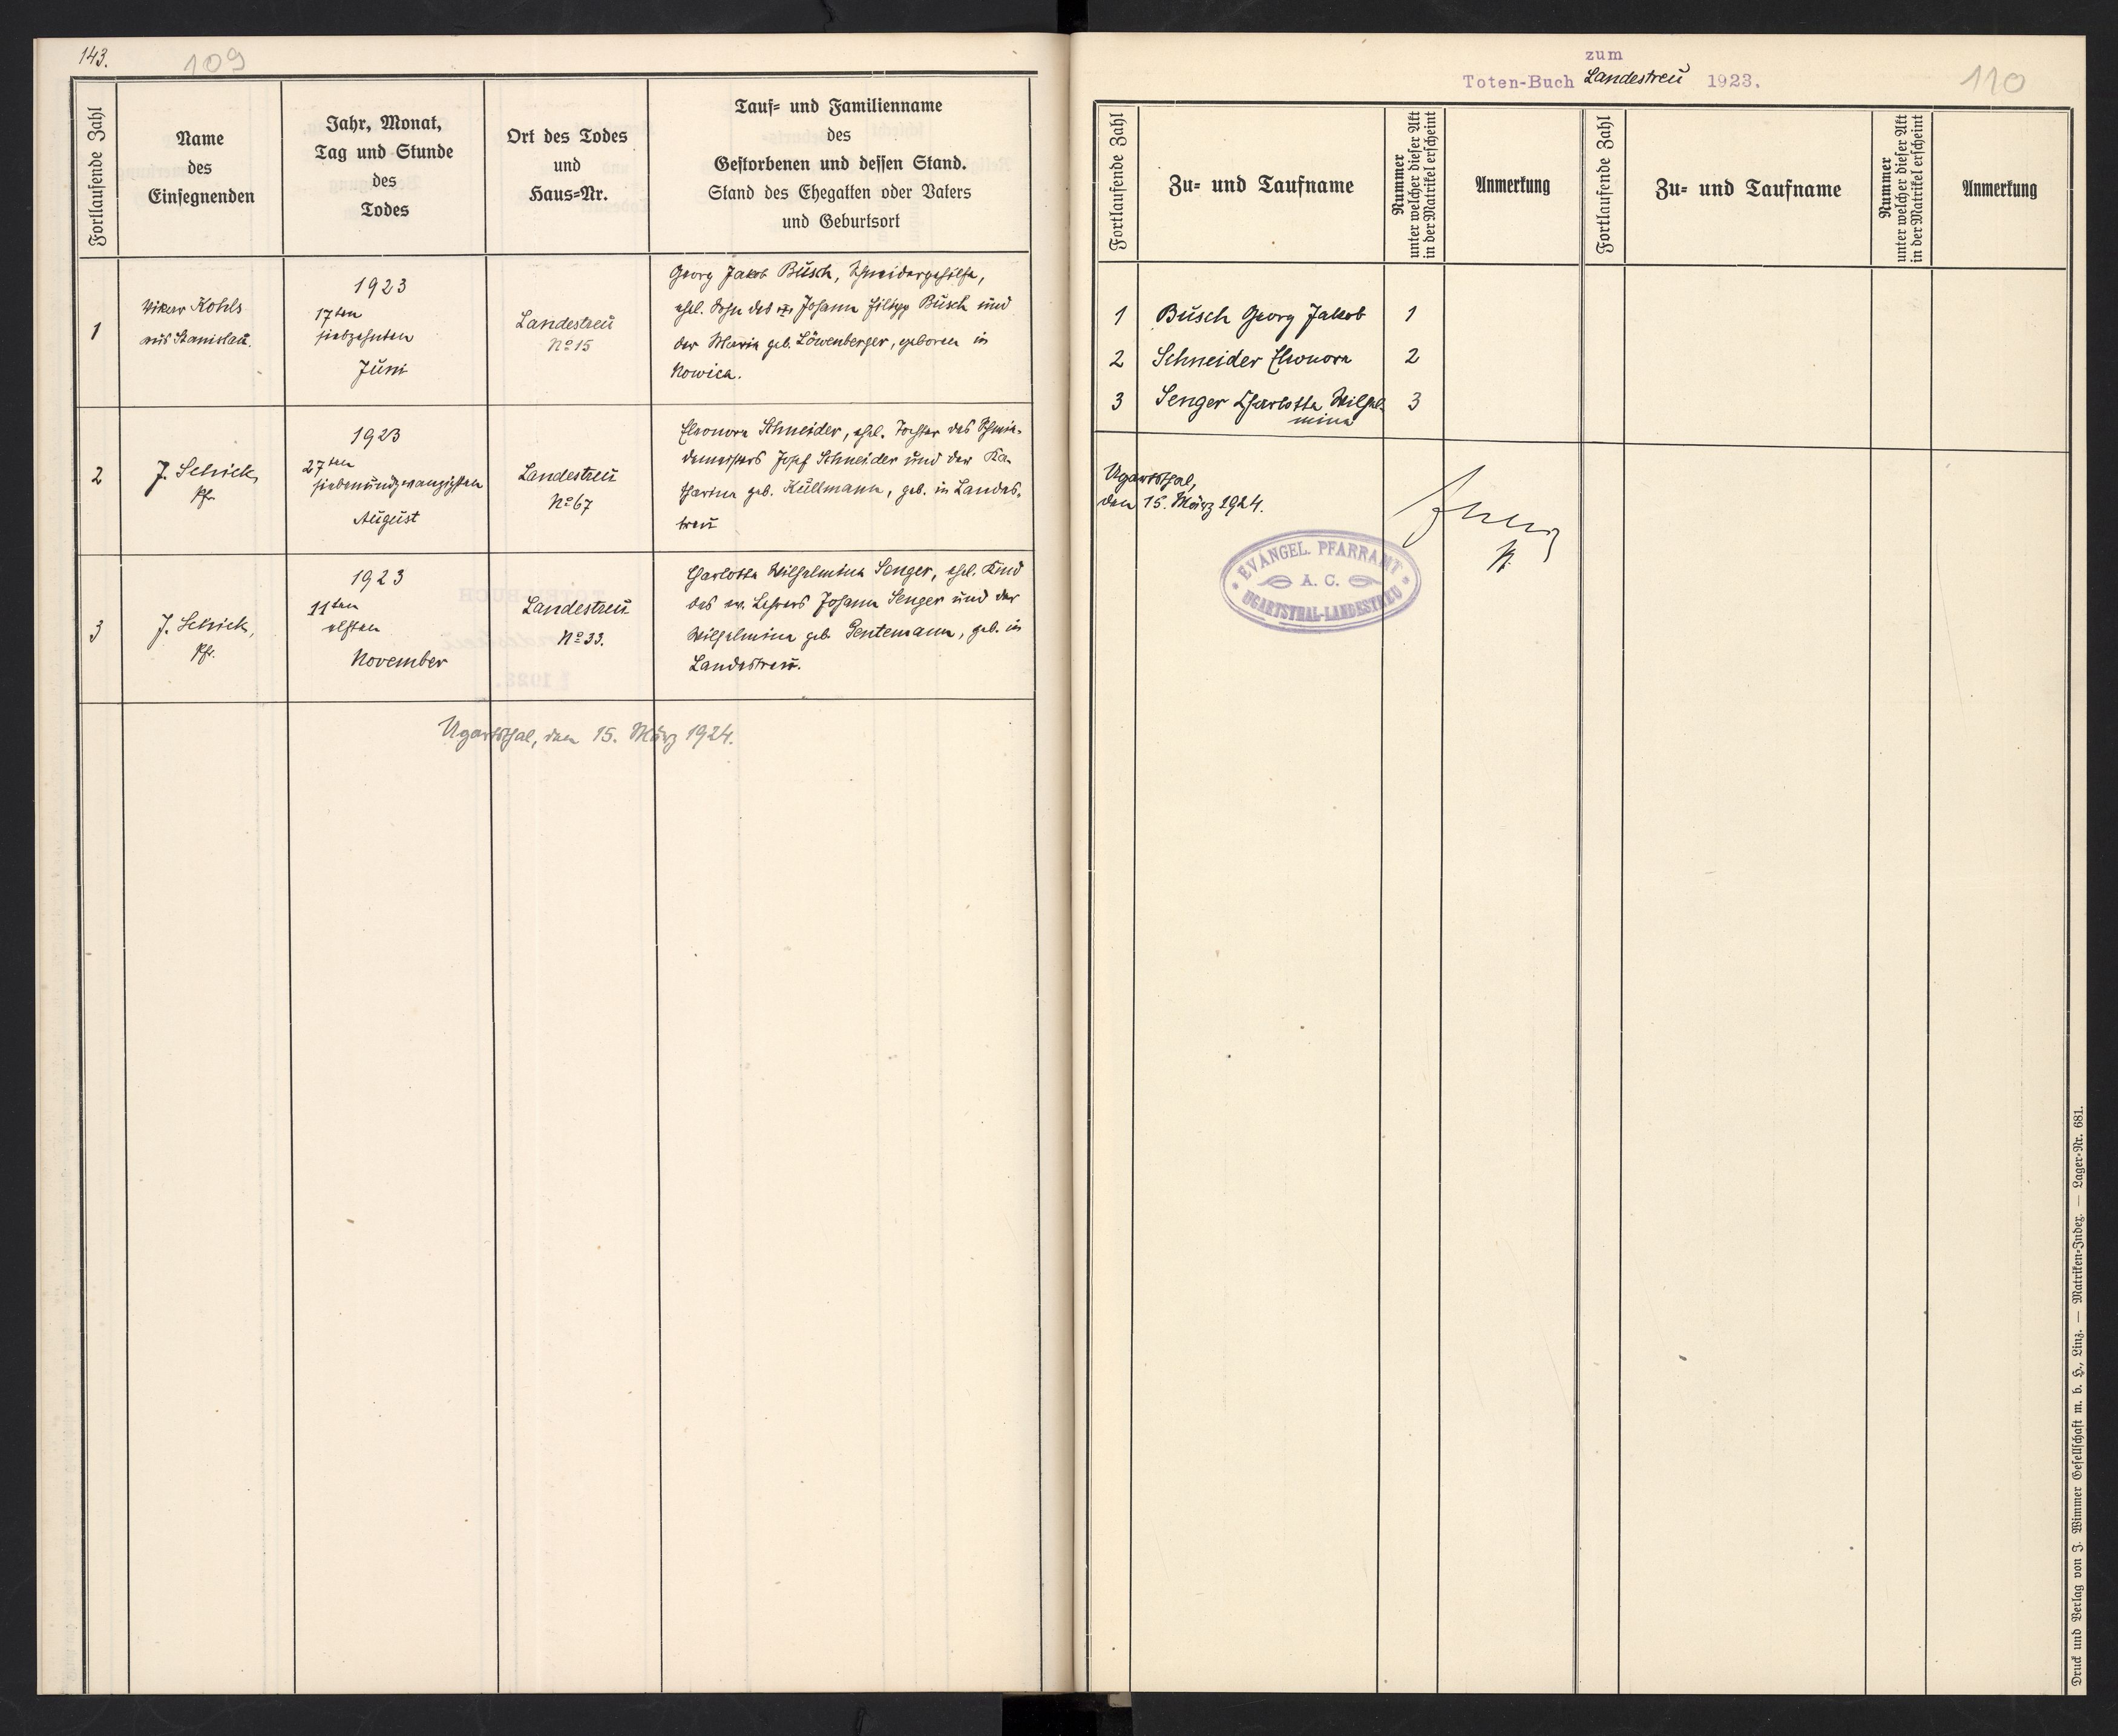 143.
109
Fortlaufende Zahl
Name
des
Einsegnenden
Jahr, Monat,
Tag und Stunde
des
Todes
Ort des Todes
und
Haus=Nr.
Tauf= und Familienname
des
Gestorbenen und dessen Stand.
Stand des Ehegatten oder Vaters
und Geburtsort
1
Vikar Kohls
aus Stanislau.
1923
17ten
siebzehnten
Juni
Landestreu
No 15
Georg Jakob Busch, Schneidergehilfe,
ehel. Sohn des Johann Filipp Busch und
der Maria geb. Löwenberger, geboren in
Nowica.
2
J. Schick,
Pfr.
1923
27ten
siebenundzwanzigsten
August
Landestreu
No 67
Eleonora Schneider, ehel. Tochter des Schmie-
demeisters Josef Schneider und der Ka-
tharina geb. Küllmann, geb. in Landes-
treu
3
J. Schick,
Pfr.
1923
11ten
elften
November
Landestreu
No 33.
Charlotta Wilhelmina Senger, ehel. Kind
des ev. Lehrers Johann Senger und der
Wilhelmina geb. Pentemann, geb. in
Landestreu.
Ugartsthal, den 15. März 1924.
zum
Toten-Buch Landestreu 1923.
110
Fortlaufende Zahl
Zu= und Taufname
Nummer
unter welcher dieser Akt
in der Matrikel erscheint
Anmerkung
Fortlaufende Zahl
Zu= und Taufname
Nummer
unter welcher dieser Akt
in der Matrikel erscheint
Anmerkung
1 Busch Georg Jakob 1
2 Schneider Eleonora 2
3 Senger Charlotta Wilhel- 3
mina
Ugartsthal,
den 15. März 1924.
EVANGEL. PFARRAMT
A. C.
UGARTSTHAL-LANDESTREU
Druck und Verlag von J. Wimmer Gesellschaft m. b. H., Linz. — Matriken=Index. — Lager=Nr. 681.